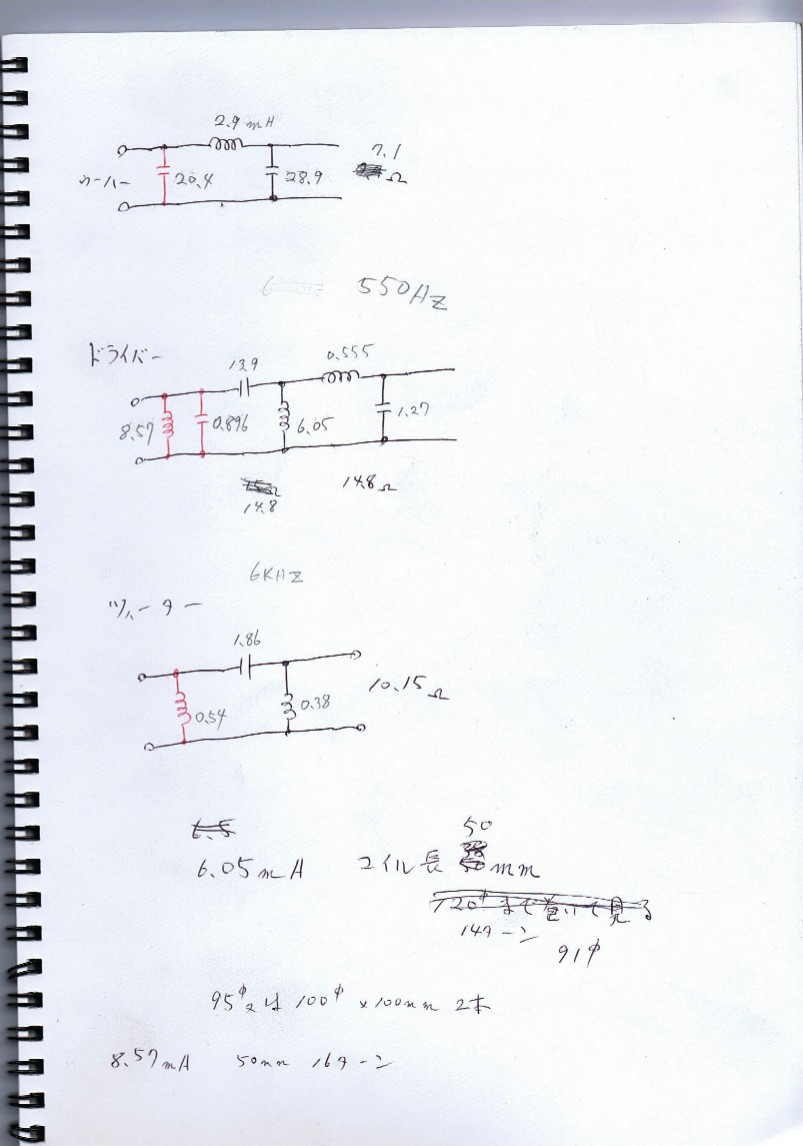 2.9 mH
7.1
ウーハー 20.4 28.9 Ω
550Hz
ドライバー
13.9 0.555
8.57 0.896 6.05 1.27
14.8 14.8Ω
6KHz
ツイーター
1.86
10.15Ω
0.54 0.38
6.5
50
6.05mH コイル長 mm
120φまで巻いて見る
14ターン
91φ
95φ又は100φ×100mm 2本
8.57mH 50mm 16ターン